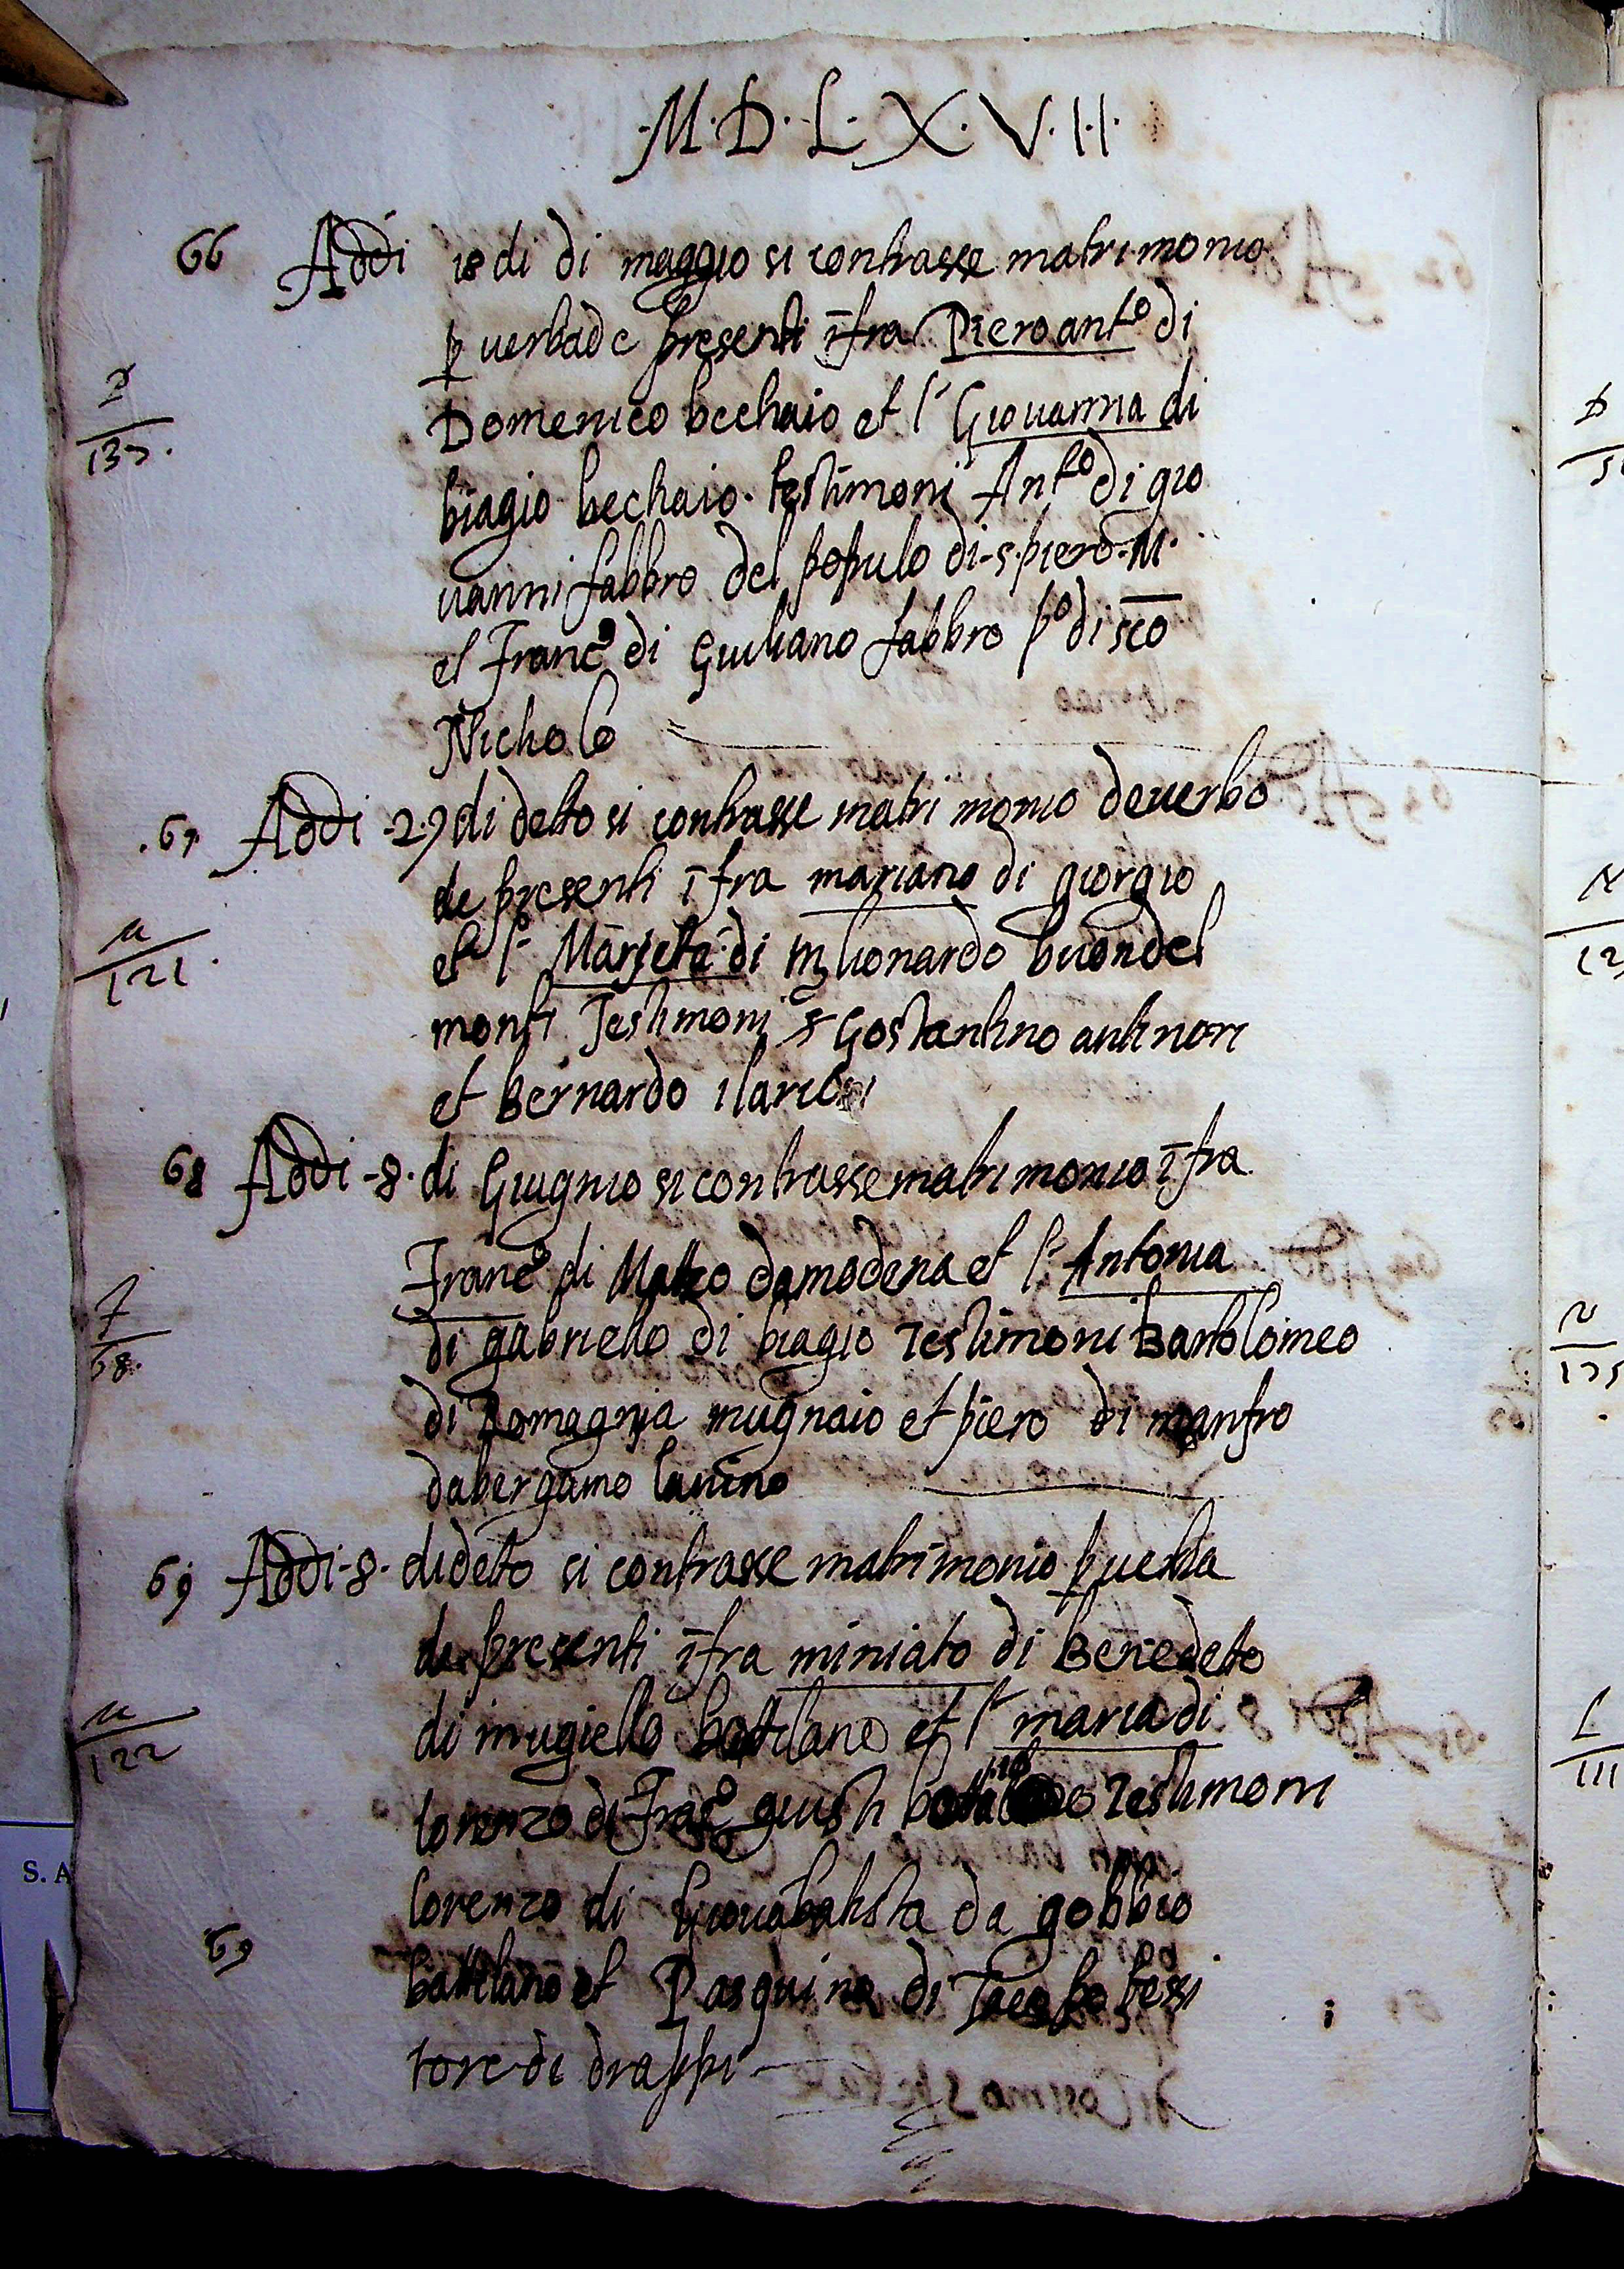 ·M·D·L·X·V·I·I·
66 Addi 18 di di maggio si contrasse matrimonio
p verba de presenti ifra Pieroant.o di
P
137.
Domenico bechaio et l.a Giovanna di
biagio bechaio. testimoni Ant.o di gio
vanni fabbro del populo di s. piero M.
et Franc.o di Giuliano fabbro p.o di sco
Nicholo
.67 Addi -29 di detto si contrasse matrimonio deverbo
de presenti ifra mariano di giorgio
M
121.
et l.a Marieta di m lionardo buondel
monti Testimoni s Gostantino antinori
et Bernardo
68 Addi -8. di Giugnio si contrasse matrimonio ifra
Franc.o di Matteo da modena et l.a Antonia
F
68.
di gabriello di biagio Testimoni Bartolomeo
di Romagnia mugnaio et piero di
da bergamo lanino
69 Addi -8. di deto si contrasse matrimonio p verba
de presenti ifra miniato di Benedeto
M
122
di mugiello battilano et l.a maria di
lorenzo di giusti Testimoni
lorenzo di Giovabatista da gobbio
69
battilano et Pasquino di Iacopo tessi
tore di drappi
S. A